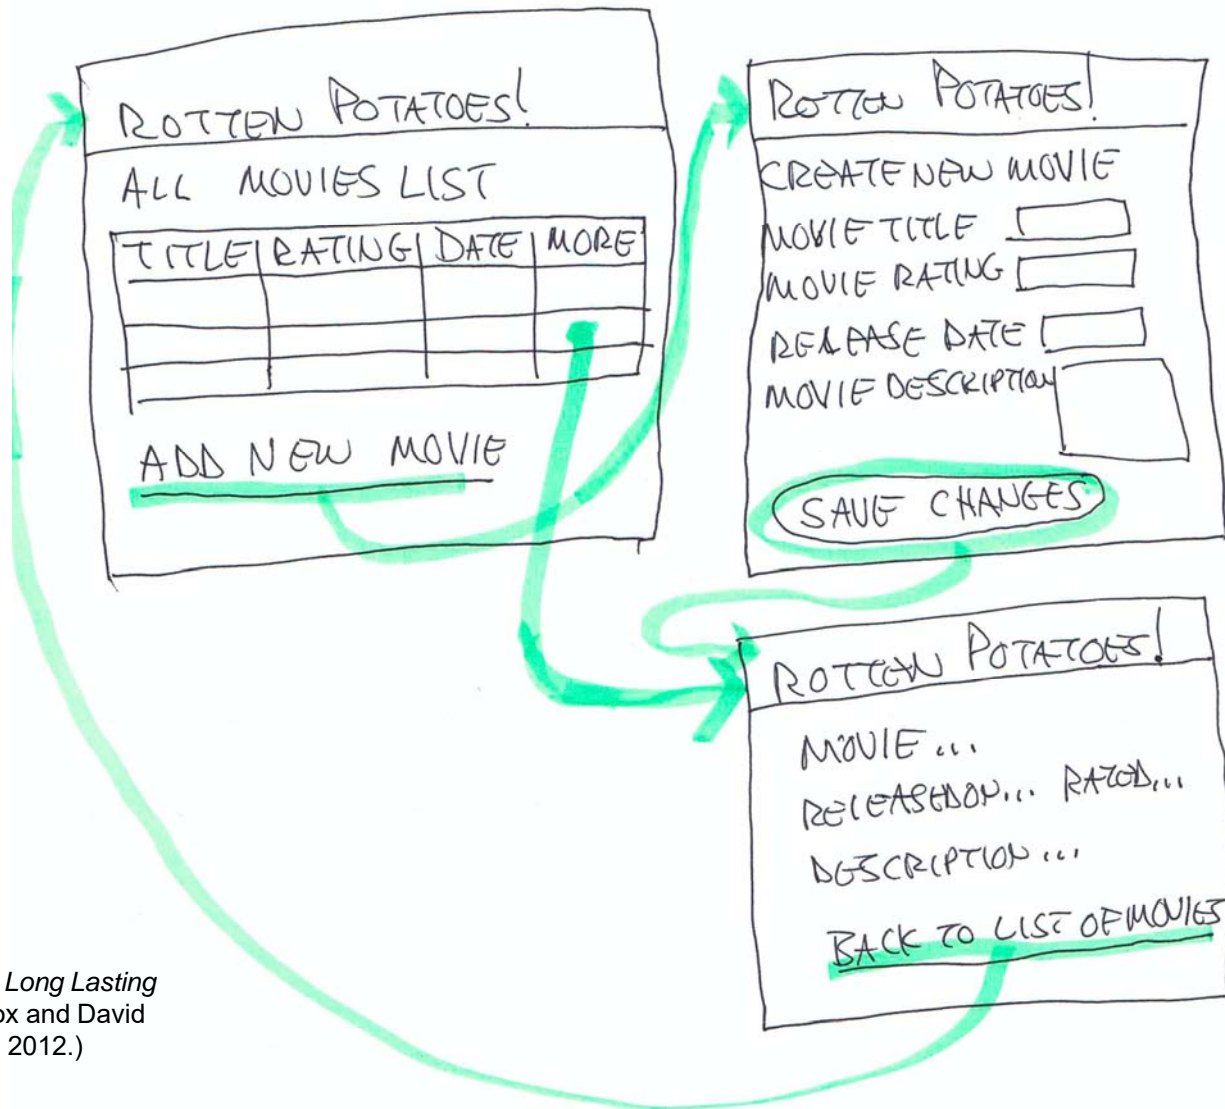 ROTTEN POTATOES!
ALL MOVIES LIST
TITLE RATING DATE MORE
ADD NEW MOVIE
ROTTEN POTATOES!
CREATE NEW MOVIE
MOVIE TITLE
MOVIE RATING
RELEASE DATE
MOVIE DESCRIPTION
SAVE CHANGES
ROTTEN POTATOES!
MOVIE ...
RELEASED ON... RATED...
DESCRIPTION ...
BACK TO LIST OF MOVIES
Long Lasting
ox and David
2012.)